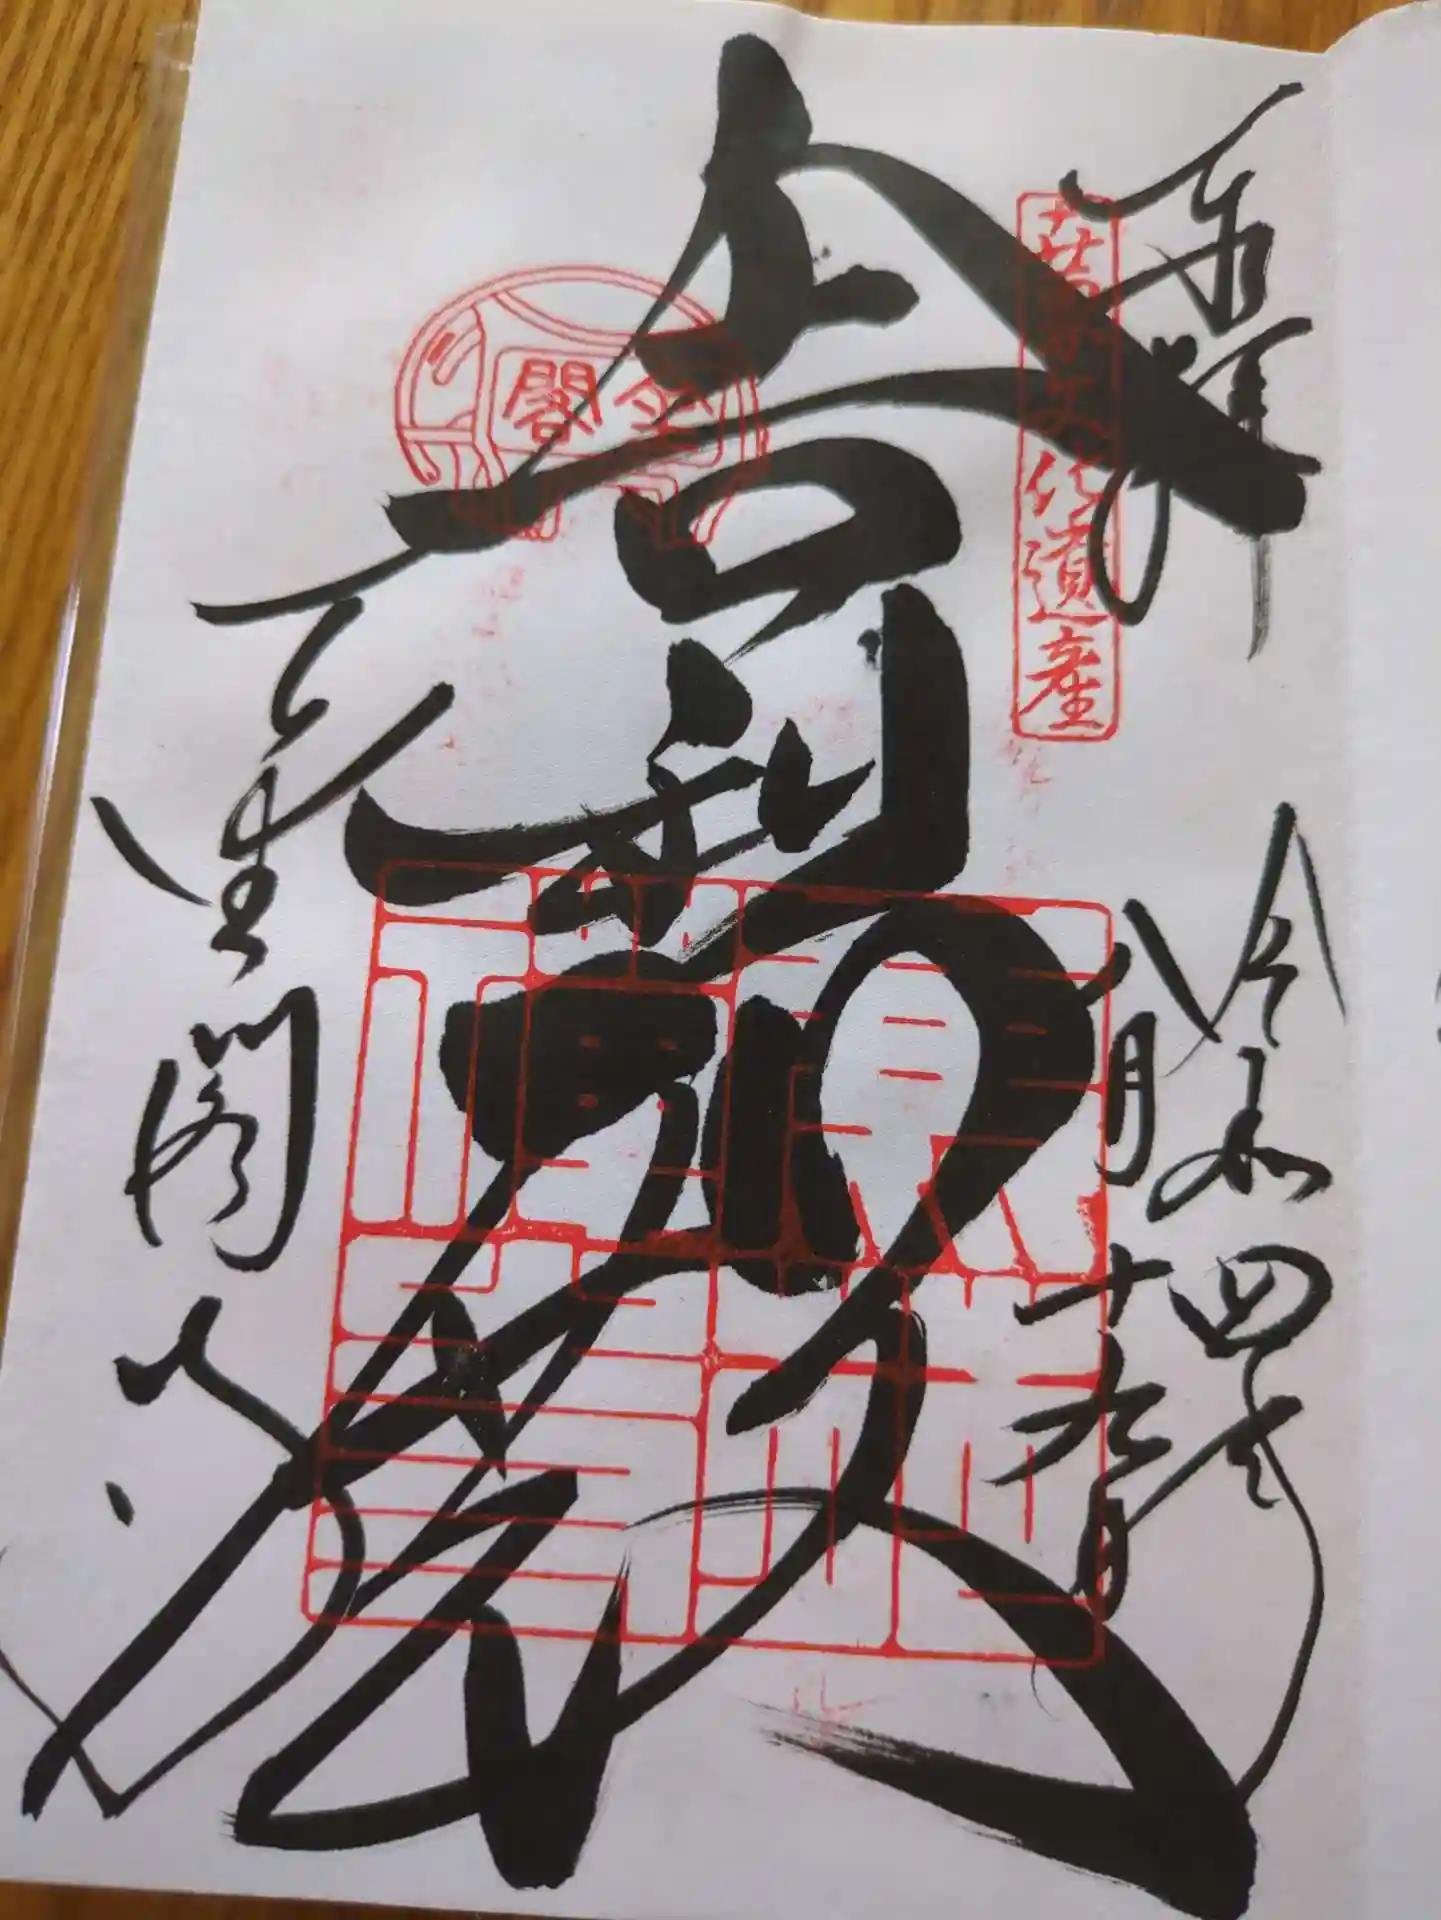 奉拝
世界文化遺産
令和四年
八月十九日
舎利殿
金閣
金閣寺